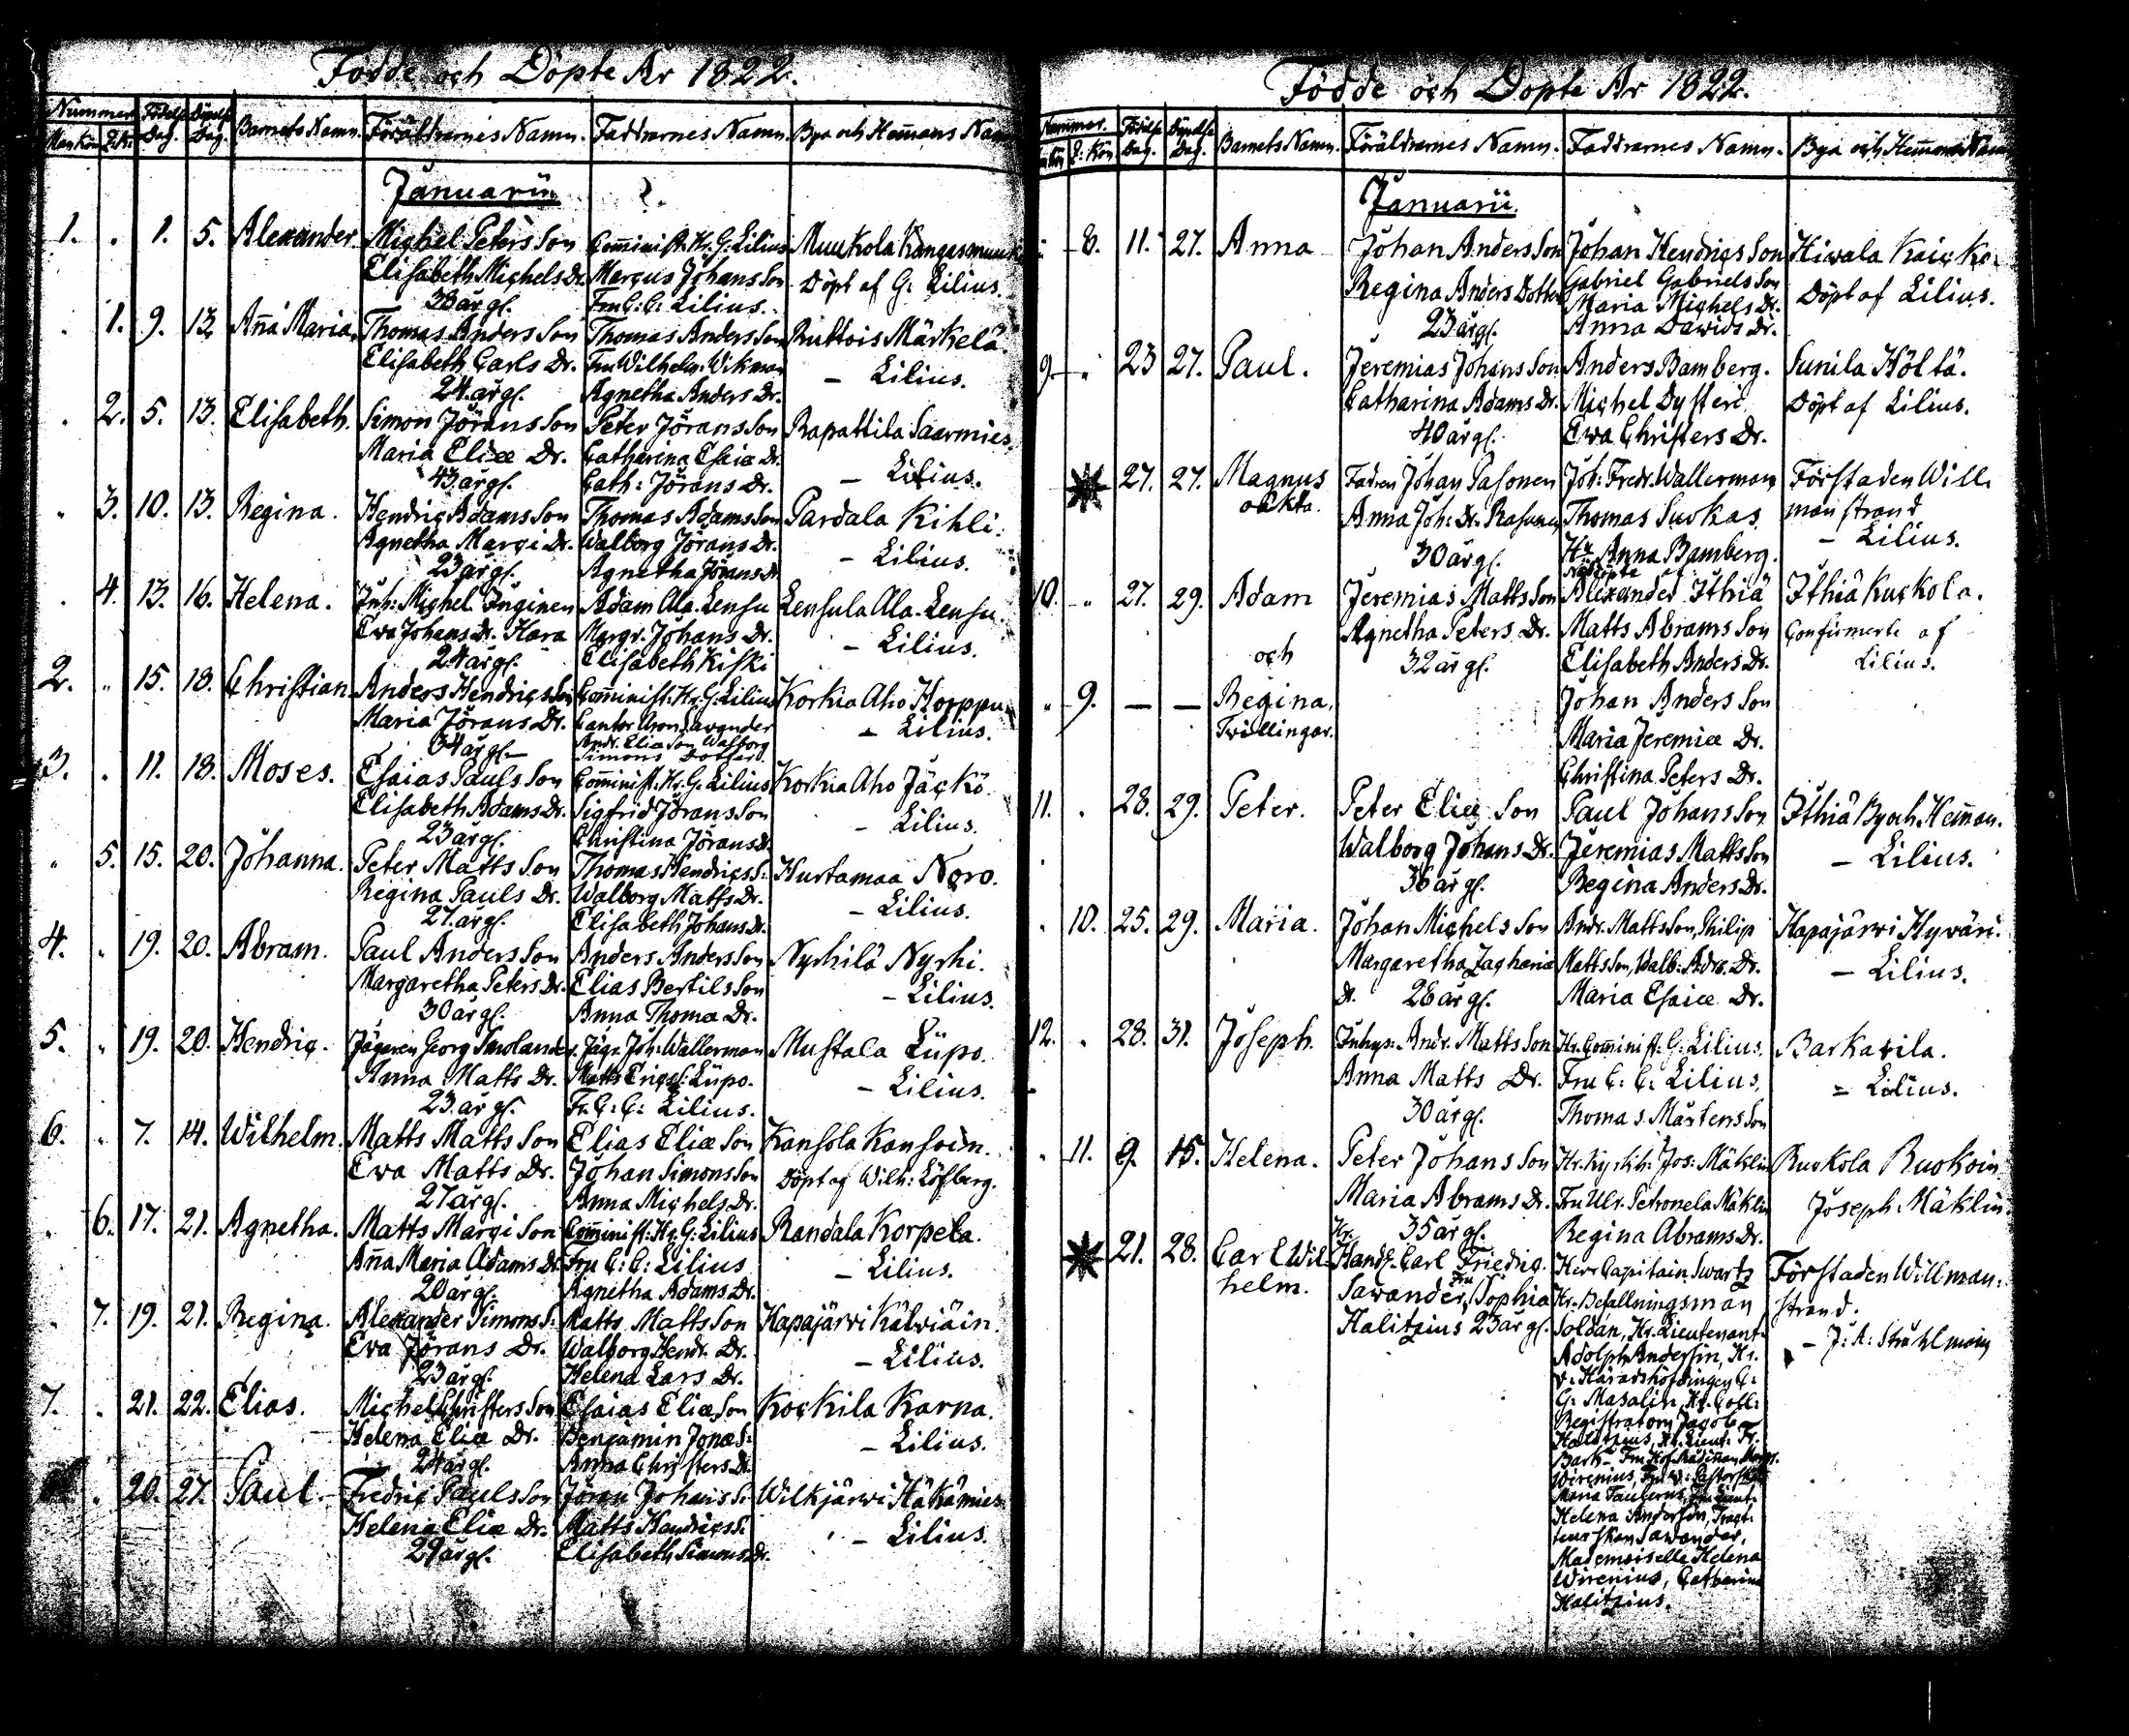 Födde och Döpte År 1822.
Nummer Födelse Dag. Döpelse Dag. Barnets Namn. Föräldrarnes Namn. Faddrarnes Namn. Bya och Hem̄ans Namn
Man Kön Q:K:
Januarii
1. . 1. 5. Alexander. Michel Peters Son Com̄inist. Hr. G. Lilius Muukola Kangasmuuk
Elisabeth Michels Dr. Marcus Johans Son Döpt af G: Lilius.
38 år gl. Fru C: C: Lilius.
. 1. 9. 13. An̄a Maria. Thomas Anders Son Thomas Anders Son Ruktois Märkelä.
Elisabeth Carls Dr. Fru Wilhelm. Wikman – Lilius.
24 år gl. Agnetha Anders Dr.
. 2. 5. 13. Elisabeth. Simon Jörans Son Peter Jörans Son Rapattila Saarmies
Maria Eliæ Dr. Catharina Esaiæ Dr. – Lilius.
43 år gl. Cath: Jörans Dr.
. 3. 10. 13. Regina. Hendric Adams Son Thomas Adams Son Pardala Kihli.
Agnetha Marci Dr. Walborg Jörans Dr. – Lilius.
23 år gl. Agnetha Jörans Dr.
. 4. 13. 16. Helena. Inh: Michel Inginen Adam Ala-Lensu Lensula Ala-Lensu.
Eva Johans Dr. Hara Margr. Johans Dr. – Lilius.
24 år gl. Elisabeth Kiski
2. . 15. 18. Christian Anders Hendrics Son Com̄inist: Hr. G. Lilius Korkia Aho Horppu
Maria Jörans Dr. Cantor Aron Lavonder – Lilius.
34 år gl. Andr. Eliæ Son Walborg
Simons Dotter.
3. . 11. 18. Moses. Esaias Pauls Son Com̄inist. Hr. G. Lilius Korkia Aho Jäckö.
Elisabeth Adams Dr. Sigfrid Jörans Son – Lilius.
23 år gl. Christina Jörans Dr.
. 5. 15. 20. Johanna. Peter Matts Son Thomas Hendrics S: Hurtamaa Noro.
Regina Pauls Dr. Walborg Matts Dr. – Lilius.
27 år gl. Elisabeth Johans Dr.
4. . 19. 20. Abram. Paul Anders Son Anders Anders Son Nyrhilä Nyrhi.
Margaretha Peters Dr. Elias Bertils Son – Lilius.
30 år gl. Anna Thomæ Dr.
5. . 19. 20. Hendric. Jägaren Georg Smolander. Jägr. Joh: Wallerman Mustala Lüpo.
Anna Matts Dr. Matts Erics S: Lüpo. – Lilius.
23 år gl. Fr. C: C: Lilius.
6. . 7. 14. Wilhelm. Matts Matts Son Elias Eliæ Son Kansola Kansoin.
Eva Matts Dr. Johan Simons Son Döpt af Wilh: Löfberg.
27 år gl. Anna Michels Dr.
. 6. 17. 21. Agnetha. Matts Marci Son Com̄inist: Hr. G: Lilius Randala Korpela.
An̄a Maria Adams Dr. Fru C: C: Lilius – Lilius.
20 år gl. Agnetha Adams Dr.
. 7. 19. 21. Regina. Alexander Simons S: Matts Matts Son Hapajärvi Kälviäin.
Eva Jörans Dr. Walborg Hendr. Dr. – Lilius.
23 år gl. Helena Lars Dr.
7. . 21. 22. Elias. Michel Christers Son Esaias Eliæ Son Kockila Karna.
Helena Eliæ Dr. Benjamin Jonæ S: – Lilius.
24 år gl. Anna Christers Dr.
. 20. 27. Paul. Fredric Pauls Son Jöran Johans S: Wilkjärvi Häkämies
Helena Eliæ Dr. Matts Hendrics S: – Lilius.
29 år gl. Elisabeth Simons Dr.
Födde och Döpte År 1822.
Nummer. Födelse Dag. Döpelse Dag. Barnets Namn. Föräldrarnes Namn. Faddrarnes Namn. Bya och Hem̄ans Namn
Q: Kön
Januarii.
8. 11. 27. Anna Johan Anders Son Johan Hendrics Son Hivala Kaicko.
Regina Anders Dotter Gabriel Gabriels Son Döpt af Lilius.
23 år gl. Maria Michels Dr.
Anna Davids Dr.
9. . 23 27. Paul. Jeremias Johans Son Anders Bamberg. Sunila Höltä.
Catharina Adams Dr. Michel Dysteri Döpt af Lilius.
40 år gl. Eva Christers Dr.
27. 27. Magnus Fadren Johan Pasonen Joh: Fredr. Wallerman Förstaden Will
oäkta. Anna Joh: Dr. Rasunen Thomas Suokas manstrand
30 år gl. Hu Anna Bamberg. – Lilius.
Nöddöpte
10. . 27. 29. Adam Jeremias Matts Son Alexander Ithiä Ithiä Kuckola.
Agnetha Peters Dr. Matts Abrams Son Confirmerte af
och 32 år gl. Elisabeth Anders Dr. Lilius.
. 9. — — Regina. Johan Anders Son
Tvillingar. Maria Jeremiæ Dr.
Christina Peters Dr.
11. . 28. 29. Peter. Peter Eliæ Son Paul Johans Son Ithiä By och Hem̄an.
Walborg Johans Dr. Jeremias Matts Son – Lilius.
36 år gl. Regina Anders Dr.
. 10. 25. 29. Maria. Johan Michels Son Andr. Matts Son, Philip Hapajärvi Hyväri.
Margaretha Zachariæ Matts Son, Walb: Andrs. Dr. – Lilius.
Dr. 26 år gl. Maria Esaiæ Dr.
12. . 28. 31. Joseph. Inhys. Andr. Matts Son Hr. Com̄inist. G: Lilius. Barkarila.
Anna Matts Dr. Fru C: C: Lilius, – Lilius.
30 år gl. Thomas Mårtens Son
. 11. 9. 15. Helena. Peter Johans Son Hr. Kyrkh: Jos: Mäklin Ruokola Ruokoin
Maria Abrams Dr. Fru Ulr. Petronela Mäklin Joseph Mäklin.
35 år gl. Regina Abrams Dr.
21. 28. Carl Wil- Hr. Handl. Carl Friedric Herr Capitain Swartz Förstaden Willman-
helm. Savander, Fru Sophia Hr. Befallningsman strand.
Halitzius 23 år gl. Soldan, Hr. Lieutenant – J: A: Stråhlman
Adolph Andersin, Hr.
v: Häradshöfdingen C:
G: Masalin, Hr. Coll:
Registratorn Jacob
Halitzius, Hr. Lieut: Fr.
Bark – Fru
Wirenius, Fru v: Pastorskan
Maria Fabierus, Fru Lieut:
Helena Andersin, Tract-
teurskan Savander,
Mademoiselle Helena
Wirenius, Catharina
Halitzius.